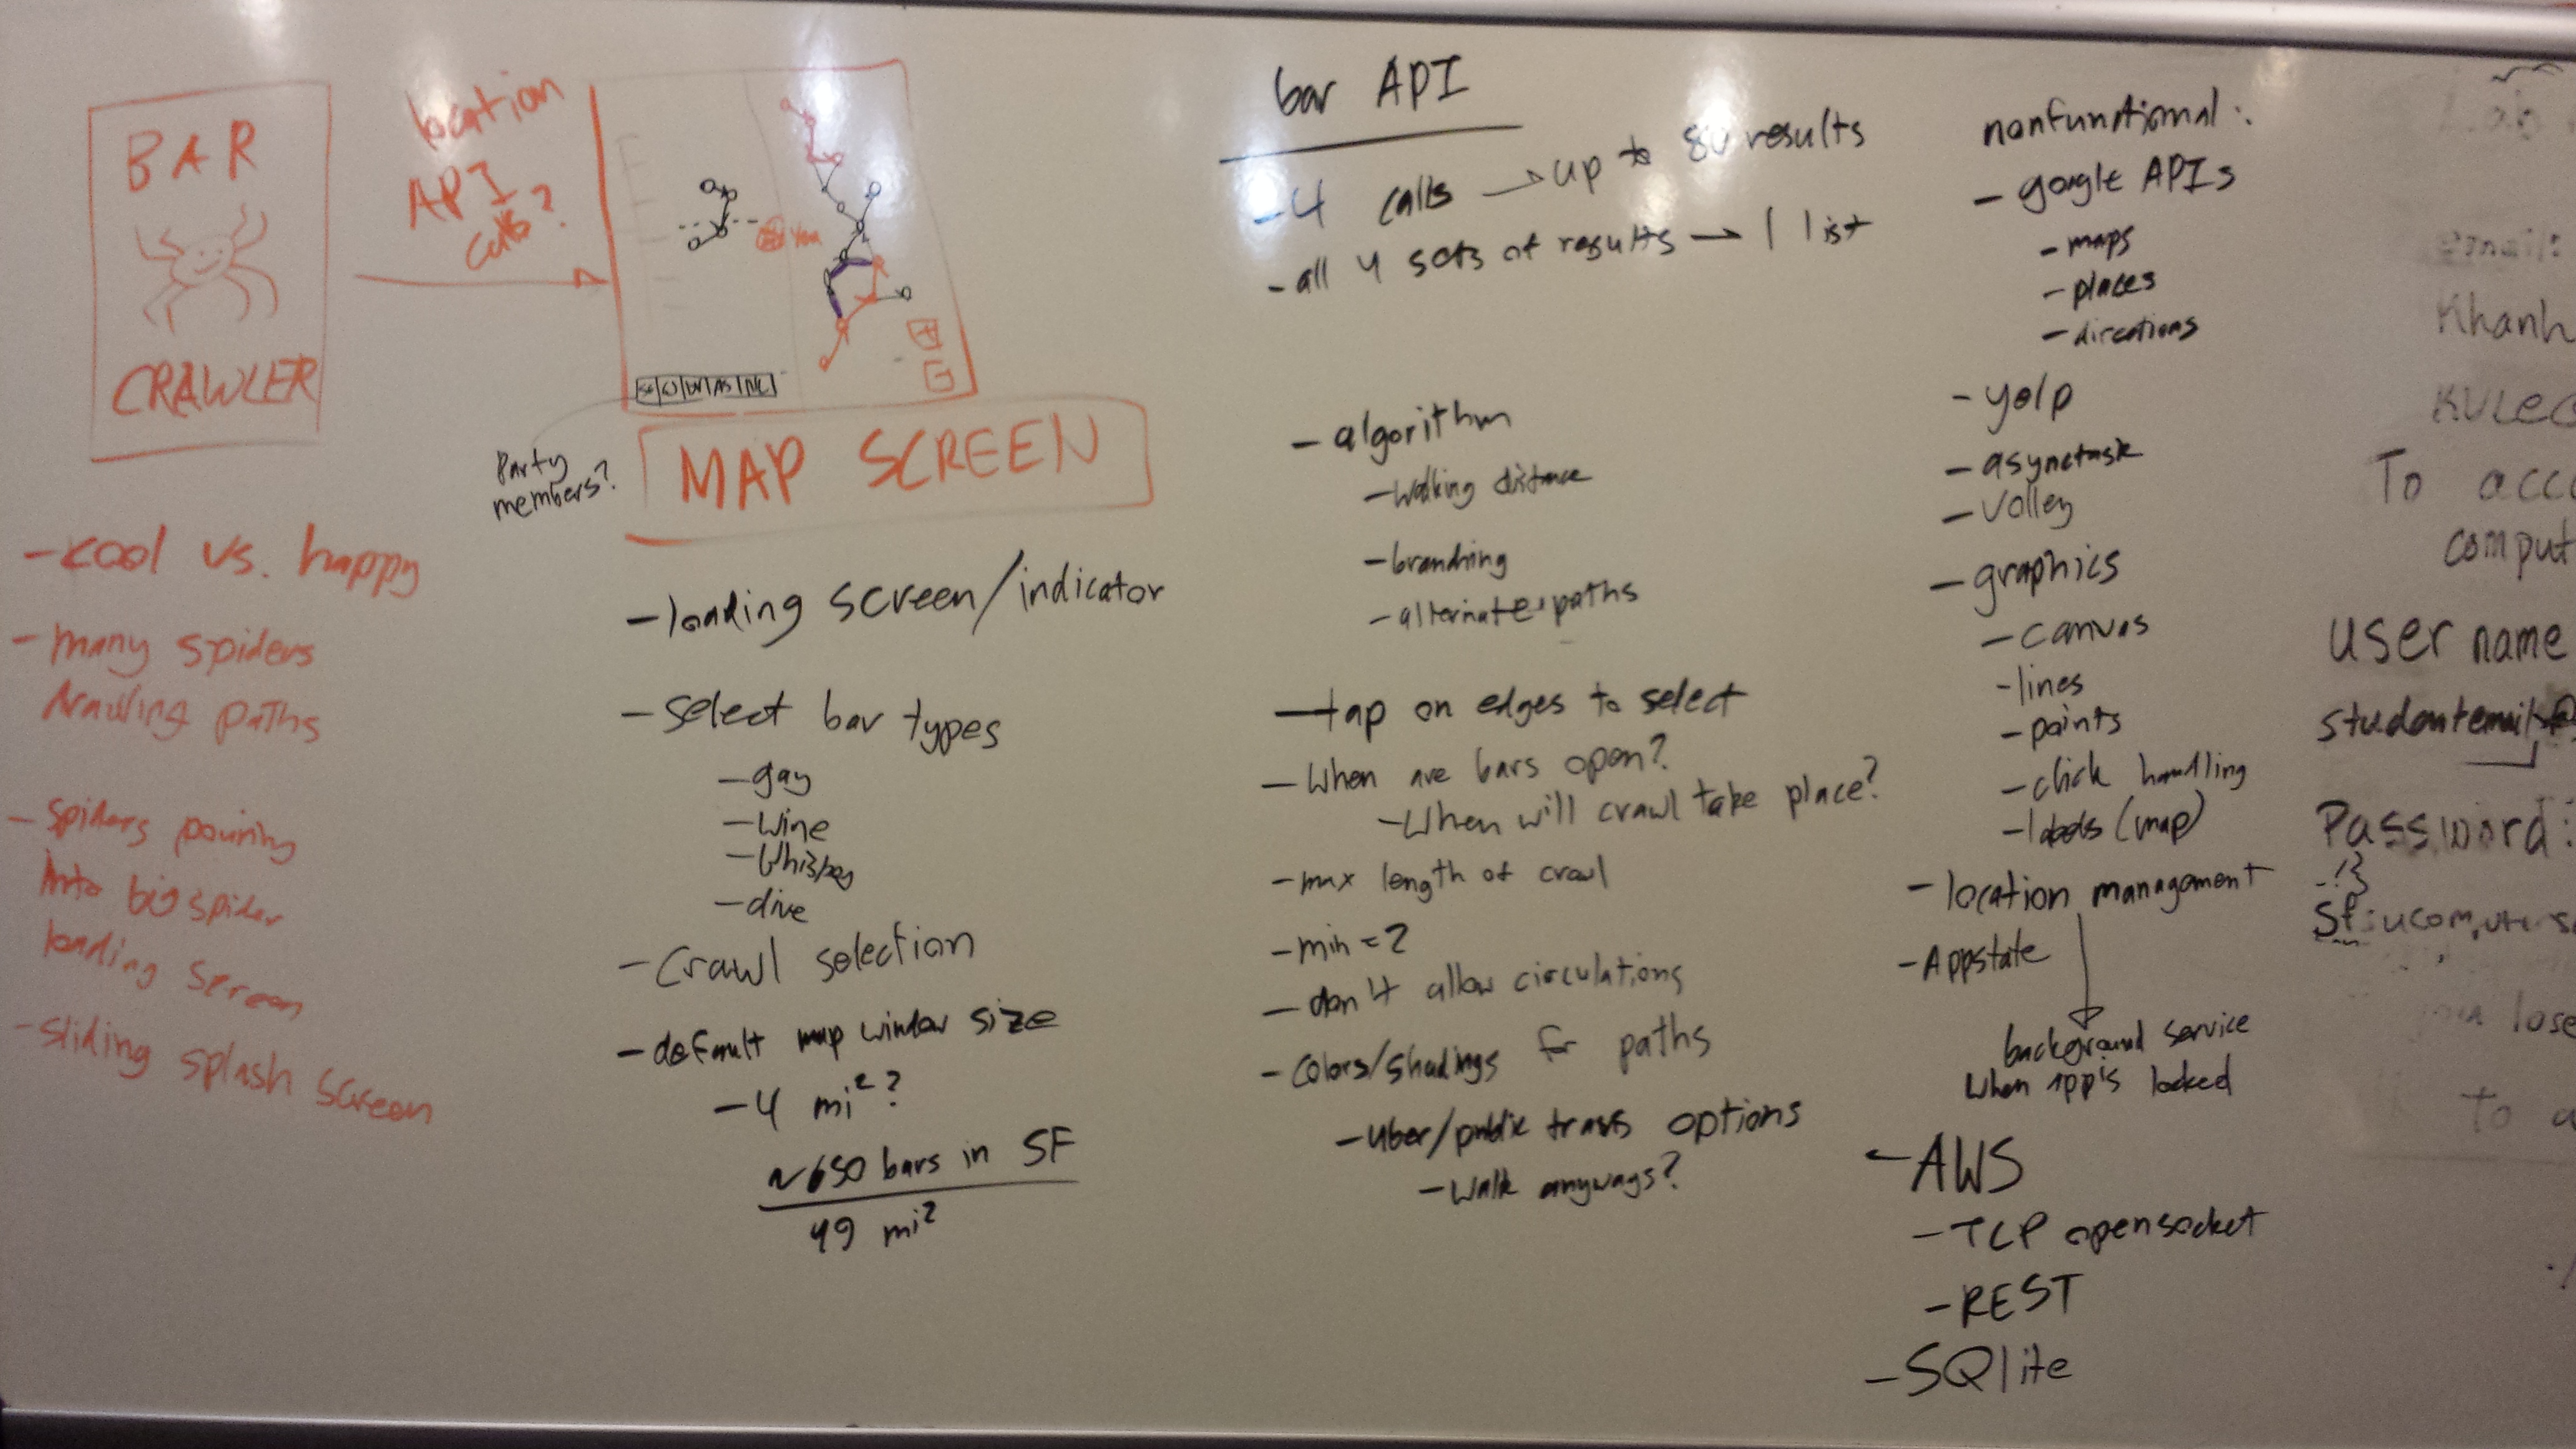 BAR
CRAWLER
location
API
calls?
You
Party
members?
MAP SCREEN
- cool vs. happy
- many spiders
crawling paths
- spiders pouring
into big spider
loading screen
- sliding splash screen
- loading screen/indicator
- select bar types
- gay
- wine
- whiskey
- dive
- Crawl selection
- default map window size
- 4 mi²?
~650 bars in SF
49 mi²
bar API
- 4 calls → up to 80 results
- all 4 sets of results → 1 list
- algorithm
- walking distance
- branching
- alternate paths
- tap on edges to select
- When are bars open?
- When will crawl take place?
- max length of crawl
- min = 2
- don't allow circulations
- colors/shadings for paths
- uber/public trans options
- walk anyways?
nonfunctional:
- google APIs
- maps
- places
- directions
- yelp
- asynctask
- Volley
- graphics
- canvas
- lines
- points
- click handling
- labels (map)
- location management
- Appstate
background service
when app is locked
- AWS
- TCP open socket
- REST
- SQlite
Lab
email:
Khanh
To acc
comput
user name
studentemail@
Password:
lose
To a